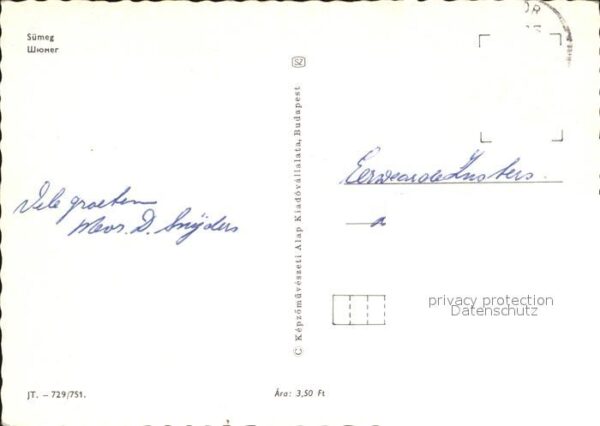 Sümeg
Шюмег
Vele groeten
Mevr. D. Snijders
© Képzőművészeti Alap Kiadóvállalata, Budapest
Eerwaarde Zusters
privacy protection
Datenschutz
JT. – 729/751.
Ára: 3,50 Ft